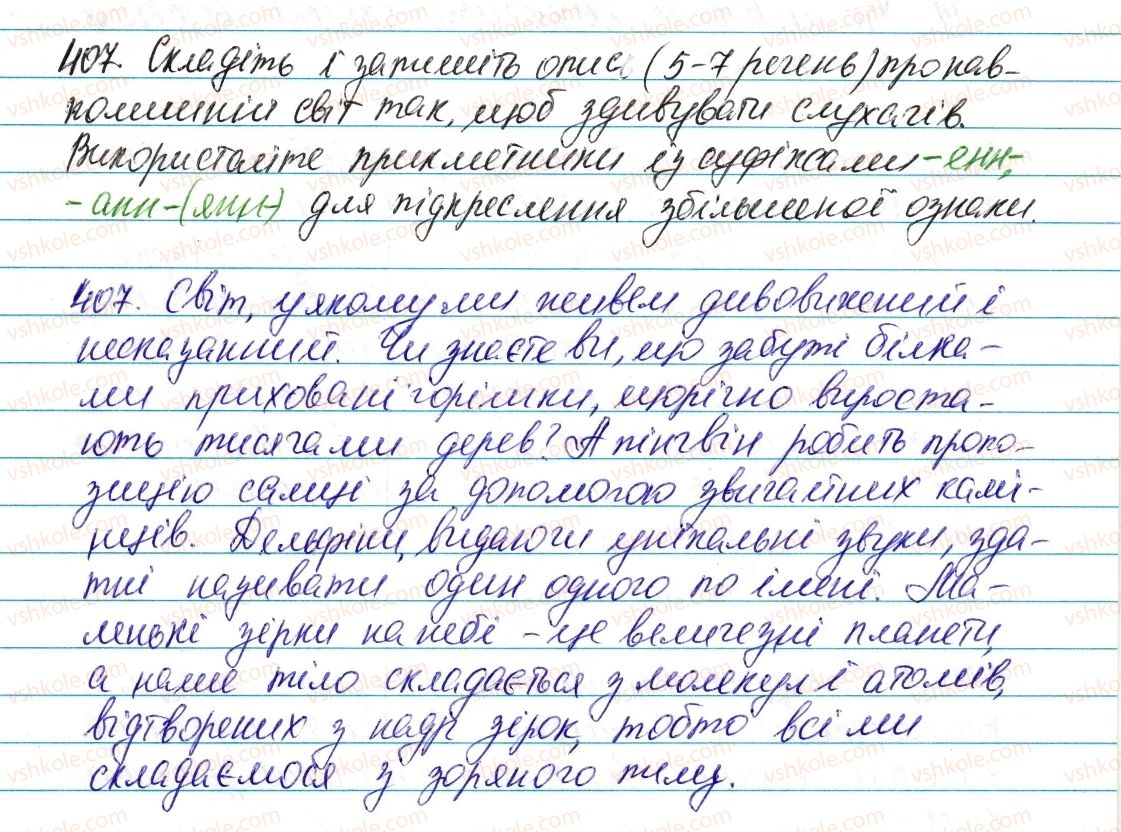 407. Складіть і запишіть опис (5-7 речень) про нав-
колишній світ так, щоб здивувати слухачів.
Використайте прикметники із суфіксами -енн-,
-анн-(янн-) для підкреслення збільшеної ознаки.
407. Світ, у якому ми живем дивовижений і
несказанний. Чи знаєте ви, що забуті білка-
ми приховані горішки, щорічно вироста-
ють тисячами дерев? А пінгвін робить пропо-
зицію самиці за допомогою звичайних камі-
нців. Дельфіни, видаючи унікальні звуки, зда-
тні називати один одного по імені. Ма-
ленькі зірки на небі - це величезні планети,
а наше тіло складається з молекул і атомів,
відтворених з надр зірок, тобто всі ми
складаємося з зоряного пилу.